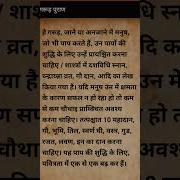 गरूड़ पुराण
हे गरूड़, जाने या अनजाने में मनुष्य,
जो भी पाप करते हैं, उन पापों की
शुद्धि के लिए उन्हें प्रायश्चित करना
चाहिए। शास्त्रों में दशविधि स्नान,
चन्द्रायण व्रत, गौ दान, आदि का लेख
किया गया है। यदि मनुष्य उन में क्षमता
के कारण सफल न हो रहा हो तो कम
से कम चौथाई प्रायश्चित अवश्य
करना चाहिए। तत्पश्चात 10 महादान,
गौ, भूमि, तिल, स्वर्ण, घी, वस्त्र, गुड़,
रजत, लवण, इन का दान करना
चाहिए। यह पाप की शुद्धि के लिए,
पवित्रता में एक से एक बढ़ कर हैं।